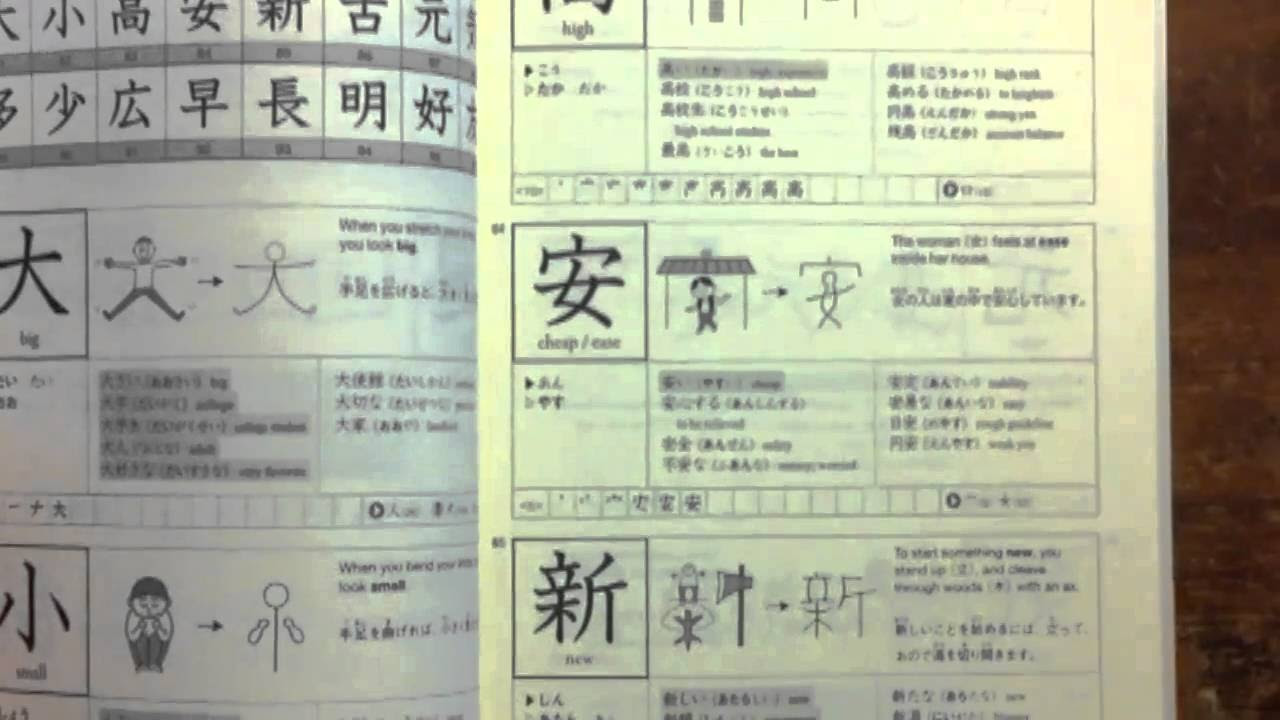 大 小 高 安 新 古 元
83 84 85 86 87
多 少 広 早 長 明 好
91 92 93 94 95
大
big
When you stretch you
you look big.
手足を広げると、
たい
大きい (おおきい) big
大学 (だいがく) college
大学生 (だいがくせい) college student
大人 (おとな) adult
大好きな (だいすきな) very favorite
大使館 (たいしかん)
大切な (たいせつな)
大家 (おおや)
一 ナ 大
人
小
small
When you bend you
look small.
手足を曲げれば、
high
▶こう
▷たか だか
高い (たかい) high; expensive
高校 (こうこう) high school
高校生 (こうこうせい)
high school student
最高 (さいこう) the best
高級 (こうきゅう) high rank
高める (たかめる) to heighten
円高 (えんだか) strong yen
残高 (ざんだか) account balance
84
安
cheap / ease
The woman (女) feels at ease
inside her house.
女の人は家の中で安心しています。
▶あん
▷やす
安い (やすい) cheap
安心する (あんしんする)
to be relieved
安全 (あんぜん) safety
不安な (ふあんな) uneasy; worried
安定 (あんてい) stability
安易な (あんいな) easy
目安 (めやす) rough guideline
円安 (えんやす) weak yen
85
新
new
To start something new, you
stand up (立), and cleave
through woods (木) with an ax.
新しいことを始めるには、立って、
おので道を切り開きます。
▶しん
新しい (あたらしい) new
新たな (あらたな) new